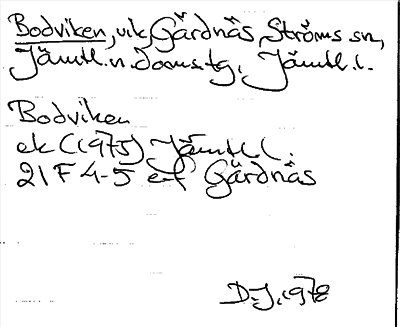 Bodviken, vik, Gärdnäs, Ströms sn,
Jämtl. n. doms.tg, Jämtl. l.
Bodviken
ek C (1975) Jämtl. l.
21 F 4-5 e-f Gärdnäs
D.J. 1978